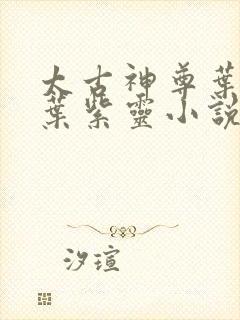 太古神尊葉
葉紫靈小說
汐瑄